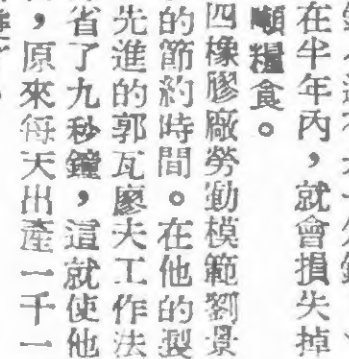 在半年內，就會損失掉
噸糧食。
四橡膠廠勞動模範劉景
的節約時間。在他的製
先進的郭瓦廖夫工作法
省了九秒鐘，這就使他
，原來每天出產一千一